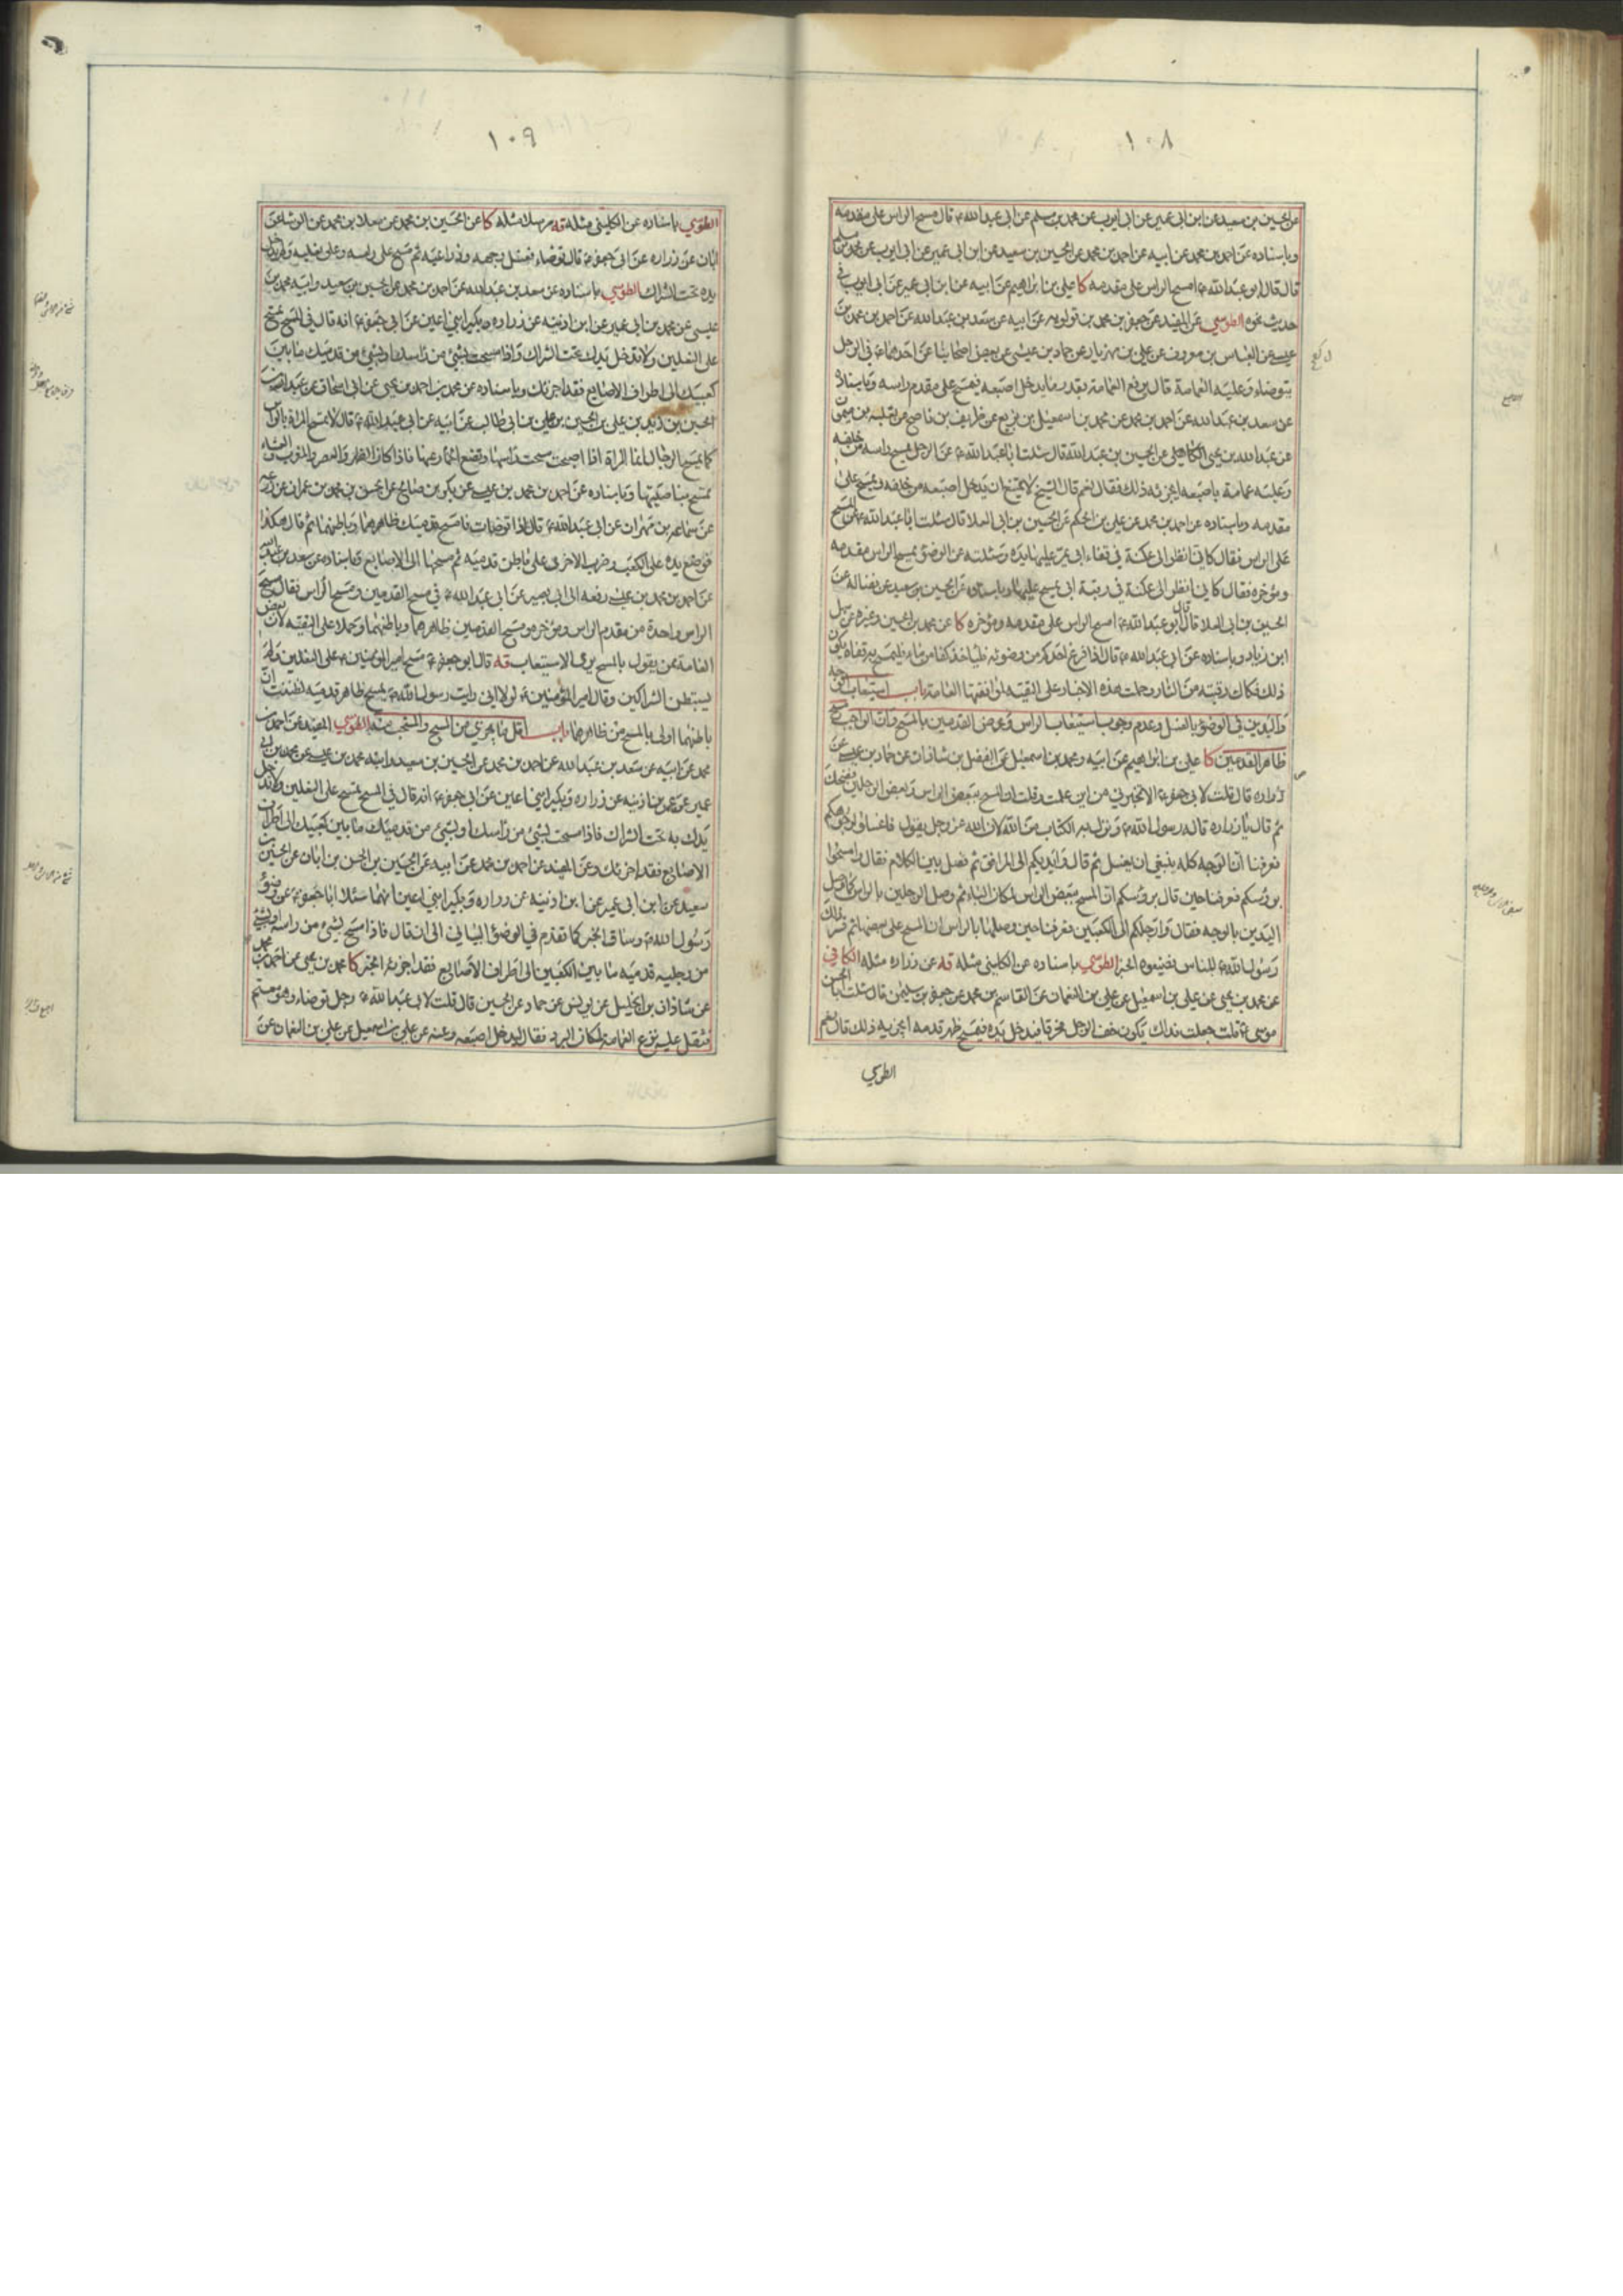 ١٠٨
عن الحسين بن سعيد عن ابن ابى عمير عن ابى ايوب عن محمد بن مسلم عن ابى عبدالله ع قال مسح الراس على مقدمه
وباسناده عن احمد بن محمد عن ابيه عن احمد بن محمد عن الحسين بن سعيد عن ابن ابى عمير عن ابى ايوب عن محمد بن مسلم
قال قال ابو عبدالله ع امسح الراس على مقدمه كا على بن ابراهيم عن ابيه عن ابن ابى عمير عن ابى ايوب فى
حديث نحوه الطوسي عن المفيد عن جعفر بن محمد بن قولويه عن ابيه عن سعد بن عبدالله عن احمد بن محمد بن
عيسى عن العباس بن معروف عن على بن مهزيار عن حماد بن عيسى عن بعض اصحابنا عن احدهما ع فى الرجل
يتوضاء وعليه العمامة قال يرفع العمامة بقدر ما يدخل اصبعه فيمسح على مقدم راسه وباسناده
عن سعد بن عبدالله عن احمد بن محمد عن محمد بن اسمعيل بن بزيع عن ظريف بن ناصح عن ثعلبه بن ميمون
عن عبدالله بن يحيى الكاهلى عن الحسين بن عبدالله قال سئلت ابا عبدالله ع عن الرجل يمسح راسه من خلفه
وعليه عمامة باصبعه ايجزئه ذلك فقال نعم قال الشيخ لا يمتنع ان يدخل اصبعه من خلفه ويمسح على
مقدمه وباسناده عن احمد بن محمد عن على بن الحكم عن الحسين بن ابى العلا قال سئلت ابا عبدالله ع عن المسح
على الراس فقال كانى انظر الى عكنة فى قفاء ابى يمر عليها يده وسئلته عن الوضوء بمسح الراس مقدمه
ومؤخره فقال كانى انظر الى عكنة فى رقبة ابى يمسح عليها وباسناده عن الحسين بن سعيد عن فضاله عن
الحسين بن ابى العلا قال قال ابو عبدالله ع امسح الراس على مقدمه ومؤخره كا عن محمد بن الحسين وغيره عن سهل
ابن زياد وباسناده عن ابى عبدالله ع قال اذا فرغ احدكم من وضوئه فلياخذ كفا من ماء فليمسح به قفاه يكون
ذلك فكاك رقبته من النار وحملت هذه الاخبار على التقيه لموافقتها العامة باب استيعاب الوجه
واليدين فى الوضوء بالغسل وعدم وجوب استيعاب الراس وعرض القدمين بالمسح وان الواجب مسح
ظاهر القدمين كا على بن ابراهيم عن ابيه ومحمد بن اسمعيل عن الفضل بن شاذان عن حماد بن عيسى عن
زراره قال قلت لابى جعفر ع الا تخبرنى من اين علمت وقلت ان المسح ببعض الراس وبعض الرجلين فضحك
ثم قال يا زراره قاله رسول الله ص ونزل به الكتاب من الله لان الله عز وجل يقول فاغسلوا وجوهكم
فعرفنا ان الوجه كله ينبغى ان يغسل ثم قال وايديكم الى المرافق ثم فصل بين الكلام فقال وامسحوا
برؤسكم فعرفنا حين قال برؤسكم ان المسح ببعض الراس لمكان الباء ثم وصل الرجلين بالراس كما وصل
اليدين بالوجه فقال وارجلكم الى الكعبين فعرفنا حين وصلها بالراس ان المسح على بعضها ثم فسر ذلك
رسول الله ص للناس فضيعوه الخبر الطوسي باسناده عن الكلينى مثله قه عن زراره مثله الكافى
عن محمد بن يحيى عن على بن اسمعيل عن على بن النعمان عن القاسم بن محمد عن جعفر بن سليمن قال سئلت ابا الحسن
موسى ع قلت جعلت فداك يكون خف الرجل مخرقا فيدخل يده فيمسح ظهر قدمه ايجزيه ذلك قال نعم
الطوسي
١٠٩
الطوسي باسناده عن الكلينى مثله قه مرسلا مثله كا عن الحسين بن محمد عن معلا بن محمد عن الوشا عن
ابان عن زراره عن ابى جعفر ع قال توضاء فغسل وجهه وذراعيه ثم مسح على راسه وعلى نعليه ولم يدخل
يده تحت الشراك الطوسي باسناده عن سعد بن عبدالله عن احمد بن محمد عن الحسين بن سعيد وابيه محمد بن
عيسى عن محمد بن ابى عمير عن ابن اذينه عن زراره وبكير ابنى اعين عن ابى جعفر ع انه قال فى المسح تمسح
على النعلين ولا تدخل يدك تحت الشراك واذا مسحت بشئ من راسك او بشئ من قدميك ما بين
كعبيك الى اطراف الاصابع فقد اجزئك وباسناده عن محمد بن احمد بن يحيى عن ابى اسحاق عن عبدالله بن
الحسين بن زيد بن على بن الحسين بن على بن ابى طالب عن ابيه عن ابى عبدالله ع قال لا تمسح المراة بالراس
كما يمسح الرجال انما المراة اذا اصبحت مسحت راسها وتضع الخمار عنها فاذا كان الظهر والعصر والمغرب والعشاء
تمسح بناصيتها وباسناده عن احمد بن محمد بن عيسى عن بكر بن صالح عن الحسن بن محمد بن عمران عن زرعه
عن سماعه بن مهران عن ابى عبدالله ع قال اذا توضات فامسح قدميك ظاهرهما وباطنهما ثم قال هكذا
فوضع يده على الكعب وضرب الاخرى على باطن قدميه ثم مسحهما الى الاصابع وباسناده عن سعد بن عبدالله
عن احمد بن محمد بن عيسى رفعه الى ابى بصير عن ابى عبدالله ع فى مسح القدمين ومسح الراس فقال مسح
الراس واحدة من مقدم الراس ومؤخره ومسح القدمين ظاهرهما وباطنهما وحملا على التقيه لان بعض
العامة ممن يقول بالمسح يرى الاستيعاب قه قال ابو جعفر ع مسح امير المؤمنين ع على النعلين ولم
يستبطن الشراكين وقال امير المؤمنين ع لولا انى رايت رسول الله ص يمسح ظاهر قدميه لظننت ان
باطنهما اولى بالمسح من ظاهرهما باب اقل ما يجزى من المسح والمستحب منه الطوسي المفيد عن احمد بن
محمد عن ابيه عن سعد بن عبدالله عن احمد بن محمد عن الحسين بن سعيد وابيه محمد بن عيسى عن محمد بن ابى
عمير عن عمر بن اذينه عن زراره وبكير ابنى اعين عن ابى جعفر ع انه قال فى المسح تمسح على النعلين ولا تدخل
يدك به تحت الشراك فاذا مسحت بشئ من راسك او بشئ من قدميك ما بين كعبيك الى اطراف
الاصابع فقد اجزئك وعن المفيد عن احمد بن محمد عن ابيه عن الحسين بن الحسن بن ابان عن الحسين بن
سعيد عن ابن ابى عمير عن ابن اذينه عن زراره وبكير ابنى اعين انهما سئلا ابا جعفر ع عن وضوء
رسول الله ص وساق الخبر كما تقدم فى الوضوء البيانى الى ان قال فاذا مسح بشئ من راسه او بشئ
من رجليه قدميه ما بين الكعبين الى اطراف الاصابع فقد اجزئه الخبر كا محمد بن يحيى عن احمد بن محمد
عن شاذان بن الخليل عن يونس عن حماد عن الحسين قال قلت لابى عبدالله ع رجل توضاء وهو معتم
فثقل عليه نزع العمامة لمكان البرد فقال ليدخل اصبعه وعنه عن على بن اسمعيل عن على بن النعمان عن